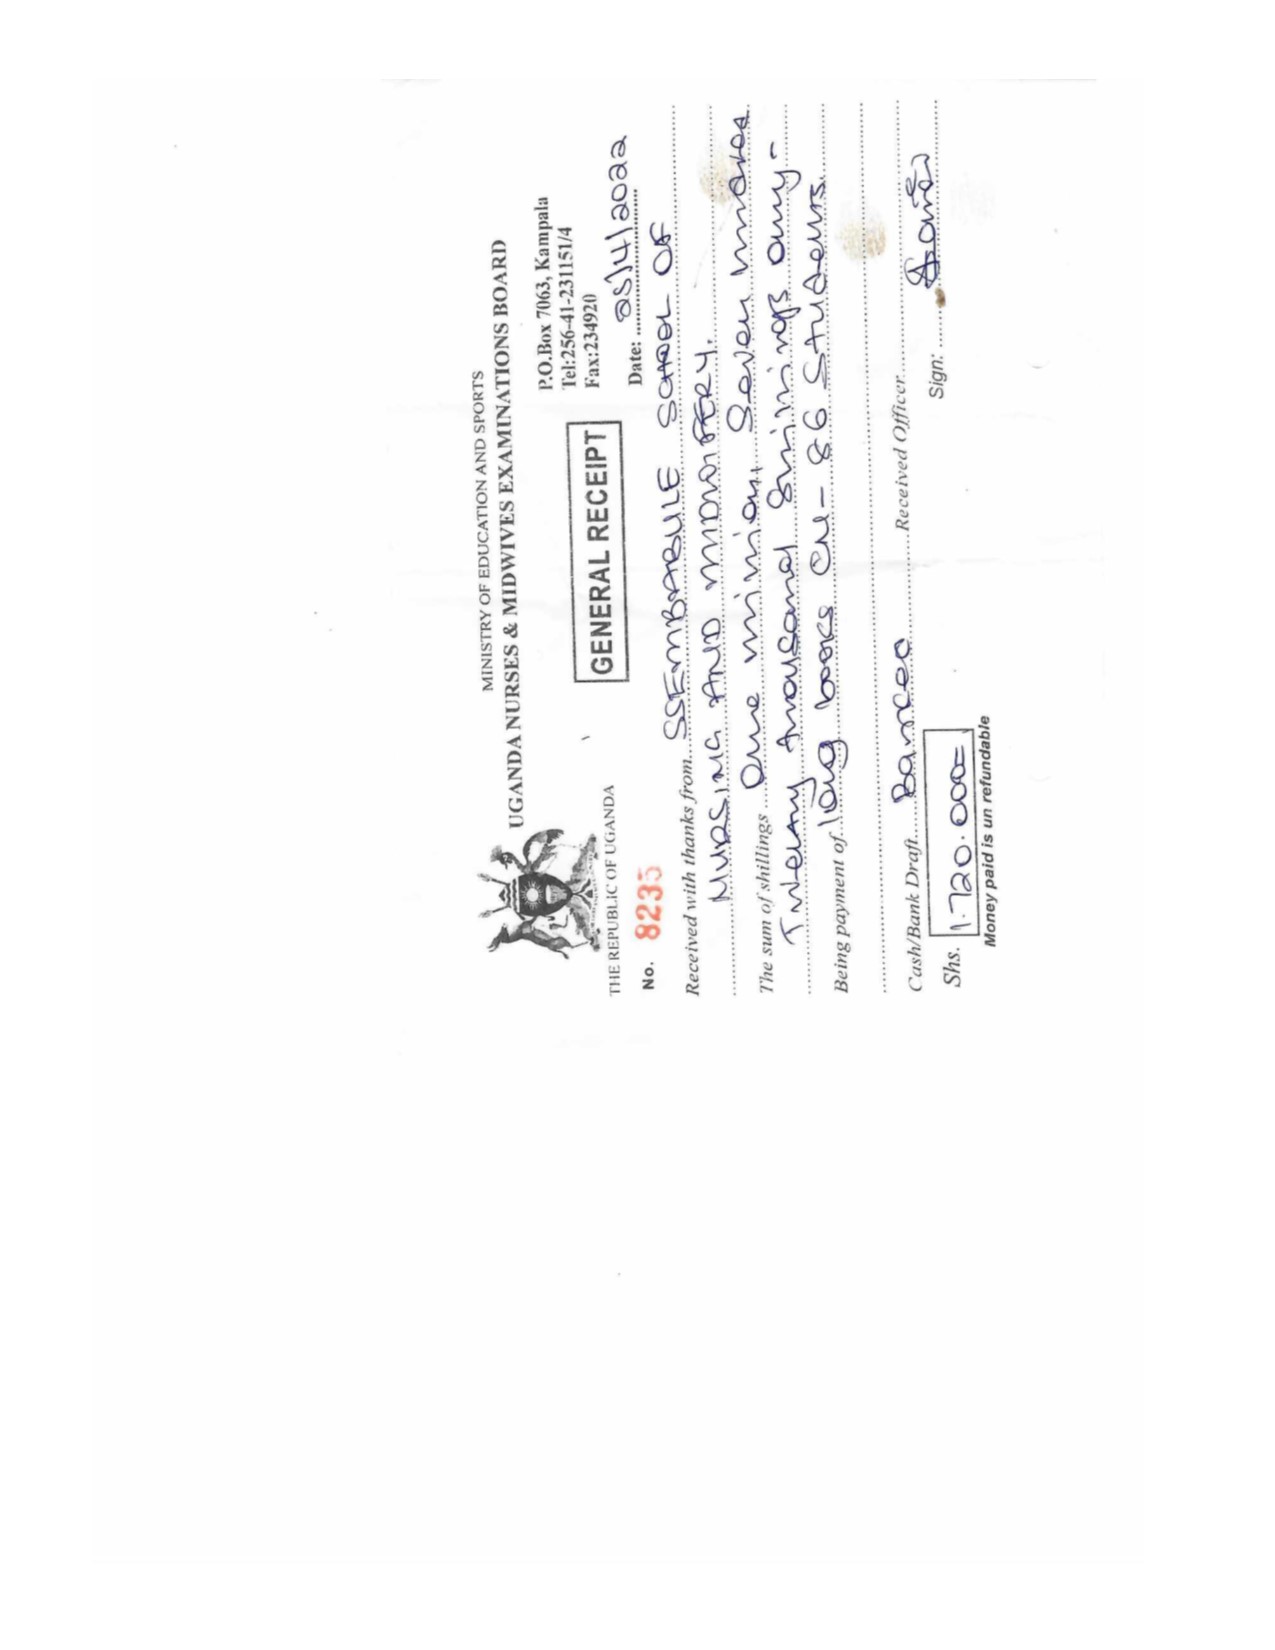 MINISTRY OF EDUCATION AND SPORTS
UGANDA NURSES & MIDWIVES EXAMINATIONS BOARD
P.O.Box 7063, Kampala
Tel:256-41-231151/4
Fax:234920
THE REPUBLIC OF UGANDA
GENERAL RECEIPT
No. 8235
Date: 25/4/2022
Received with thanks from SSEMBABULE SCHOOL OF
NURSING AND MIDWIFERY.
The sum of shillings One million Seven hundred
Twenty thousand Shillings only-
Being payment of long books CN- 86 Students
Cash/Bank Draft Banked Received Officer
Sign:
Shs. 1.720.000=
Money paid is un refundable